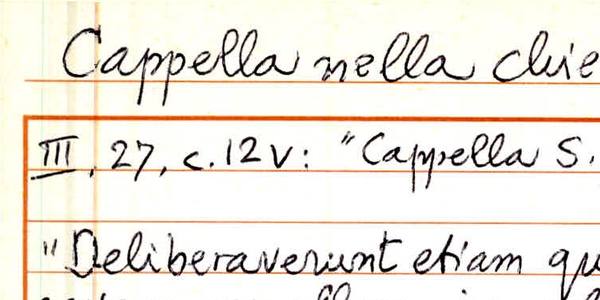 Cappella nella chie
III, 27, c. 12 v: "Cappella S.
"Deliberaverunt etiam qu